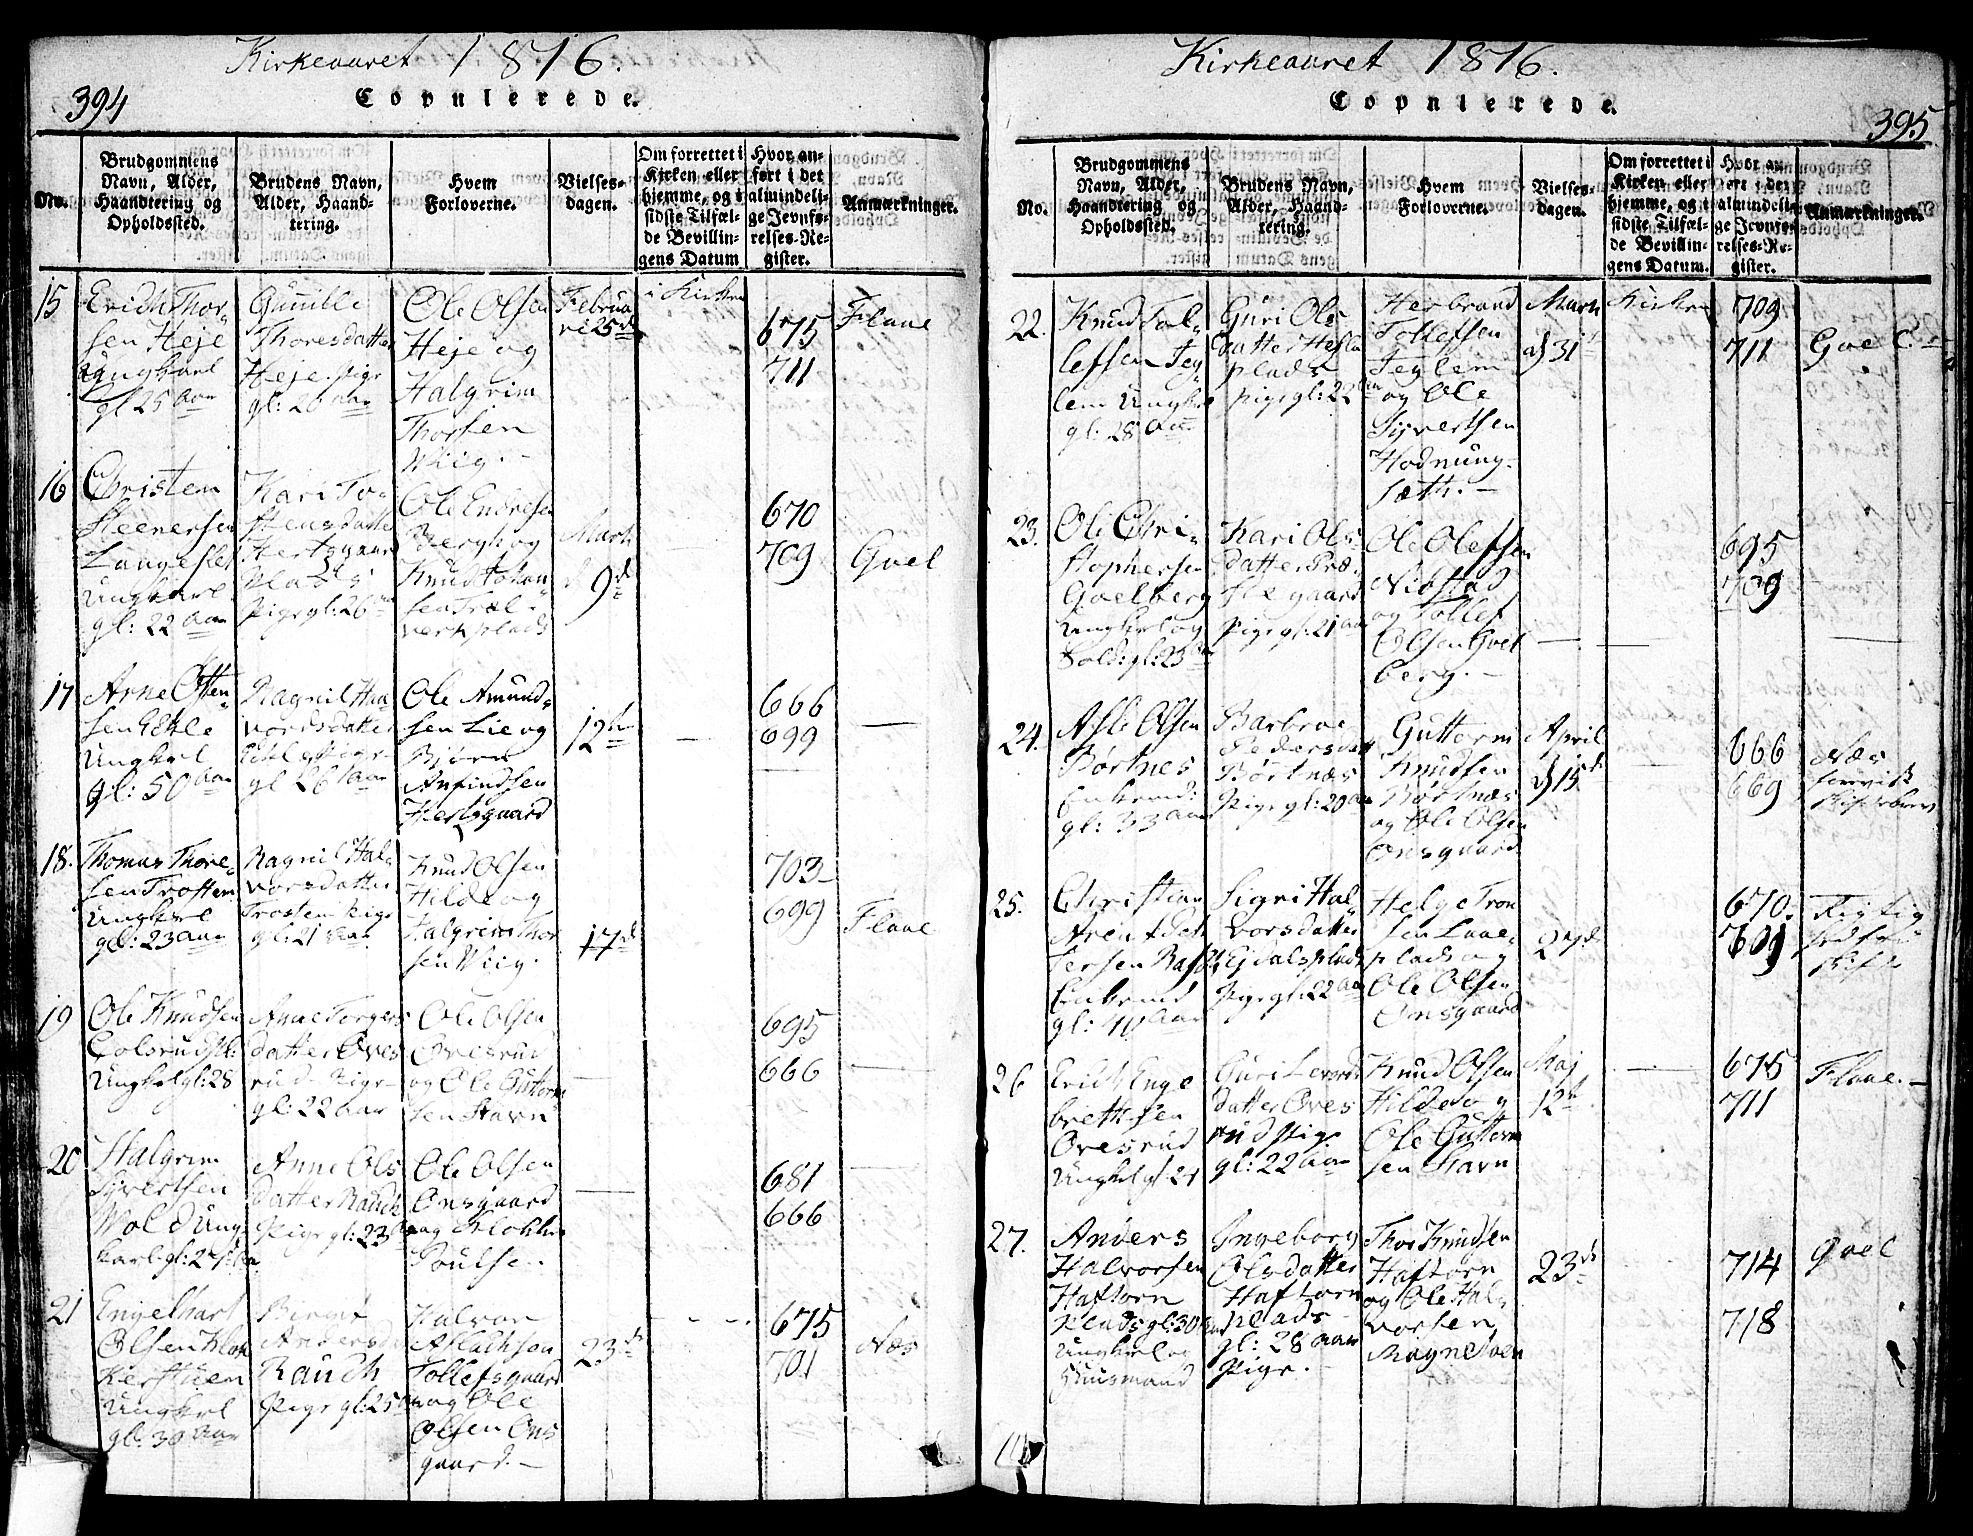 Kirkeaaret 1816.
394
Copulerede.
No.
Brudgommens Navn, Alder, Haandtering og Opholdssted.
Brudens Navn, Alder, Haandtering.
Hvem Forloverne.
Vielses-dagen.
Om forrettet i Kirken eller hjemme, og i sidste Tilfælde Bevillingens Datum
Hvor anført i det almindelige Jevnførelses-Register.
Anmærkninger.
15
Erich Thor-
sen Heje
Ungkarl
gl 25 Aar
Gunnille
Thoresdatter
Heje. Pige
gl: 26 Aar
Ole Olsen
Heje og
Halgrim
Thorsen
Wiig.
Februa
ri 25de
i Kirken
675
711
Flaae
16
Christen
Steenersen
Langeslet
Ungkarl
gl: 22 Aar
Kari To-
stensdatter
Hertzgaard
Plads
Pige gl: 26
Ole Endresen
Bergh og
Knud Johan
sen Træl-
verkplads
Marti
d 9de
670
709
Goel
17
Arne Otten
sen Ekle
Ungkarl
gl: 50 Aar
Ragnil Haa
vordsdatter
Ekle Pige
gl 26 Aar
Ole Amund-
sen Lie og
Bjørn
Anfindsen
Hertzgaard
12te
—
666
699
—
18.
Thomas Thore-
sen Trosten
Ungkarl
gl: 23 Aar
Ragnil Hal-
vorsdatter
Trosten Pige
gl: 21 Aar
Knud Olsen
Hilde og
Halgrim Thor
sen Wiig.
17de
703
699
Flaae
19
Ole Knudsen
Golsrud
Ungkarl gl: 28
Anne Torgers
datter Øves
rud Pige
gl: 22 Aar
Ole Olsen
Øvesrud
og Ole Guttorm
sen Stavn
—
695
666
—
20
Halgrim
Syvertsen
Wold Ung-
karl gl: 27 Aar
Anne Ols
datter Rauch
Pige gl: 23
Ole Olsen
Onsgaard
og
Poulsen
—
681
666
—
21
Engelhart
Olsen Klok
Kerstuen
Ungkarl
gl: 30 Aar
Birgit
Andersd
Rauch
Pige gl: 25
Halvor
Aslachson
Tollefsgaard
og Ole
Olsen Ons
gaard.
23de
675
701
Næs
Kirkeaaret 1816.
395
Copulerede.
No.
Brudgommens Navn, Alder, Haandtering og Opholdssted.
Brudens Navn, Alder, Haandtering.
Hvem Forloverne.
Vielses-dagen.
Om forrettet i Kirken eller hjemme, og i sidste Tilfælde Bevillingens Datum.
Hvor anført i det almindelige Jevnførelses-Register.
Anmærkninger.
22.
Knud Tol-
lefsen Teg-
lem Ungkarl
gl: 28 Aar
Guri Ols
datter Hesla
plads
Pige gl: 22 Aar
Herbrand
Tollefsen
Teglem
og Ole
Syvertsen
Hodnung-
sæth.
Marti
d 31
Kirken
709
711
Goel
23.
Ole Chri-
stophersen
Goelberg
Ungkarl og
Sold: gl: 23
Kari Ols
datter Præ-
stegaard
Pige gl: 21 Aar
Ole Olefsen
Nibstad
og Tollef
Olsen Goel
berg.
—
695
709
—
24.
Asle Olsen
Børtnes
Enkemd:
gl: 33 Aar
Barbroe
Pedersdatt
Børtnæs
Pige gl: 20 Aar
Guttorm
Knudsen
Børtnæs
og Ole Olsen
Onsgaard
April
d 15de
666
669
Næs
25.
Christian
Arent
Enkemd
gl: 40 Aar
Sigri Hal-
vorsdatter
Ejdalsplads
Pige gl: 22 Aar
Helge Tron
sen Laae-
plads og
Ole Olsen
Onsgaard
27de
670.
709
26
Erich Enge
brethsen
Øvesrud
Ungkarl gl: 21
Guri Levords
datter Øves
rud Pige
gl: 22 Aar
Knud Olsen
Hilde og
Ole Guttorm
sen Stavn
Maj
12te
675
711
Flaae.
27.
Anders
Halvorsen
Haftorn
Plads gl: 30 Aar
Ungkarl og
Huusmand
Ingeborg
Olsdatter
Haftorn
plads
gl: 28 Aar
Pige.
Thor Knudsen
Haftorn
og Ole Hal-
vorsen
Magnetoen
23de
714
718
Goel